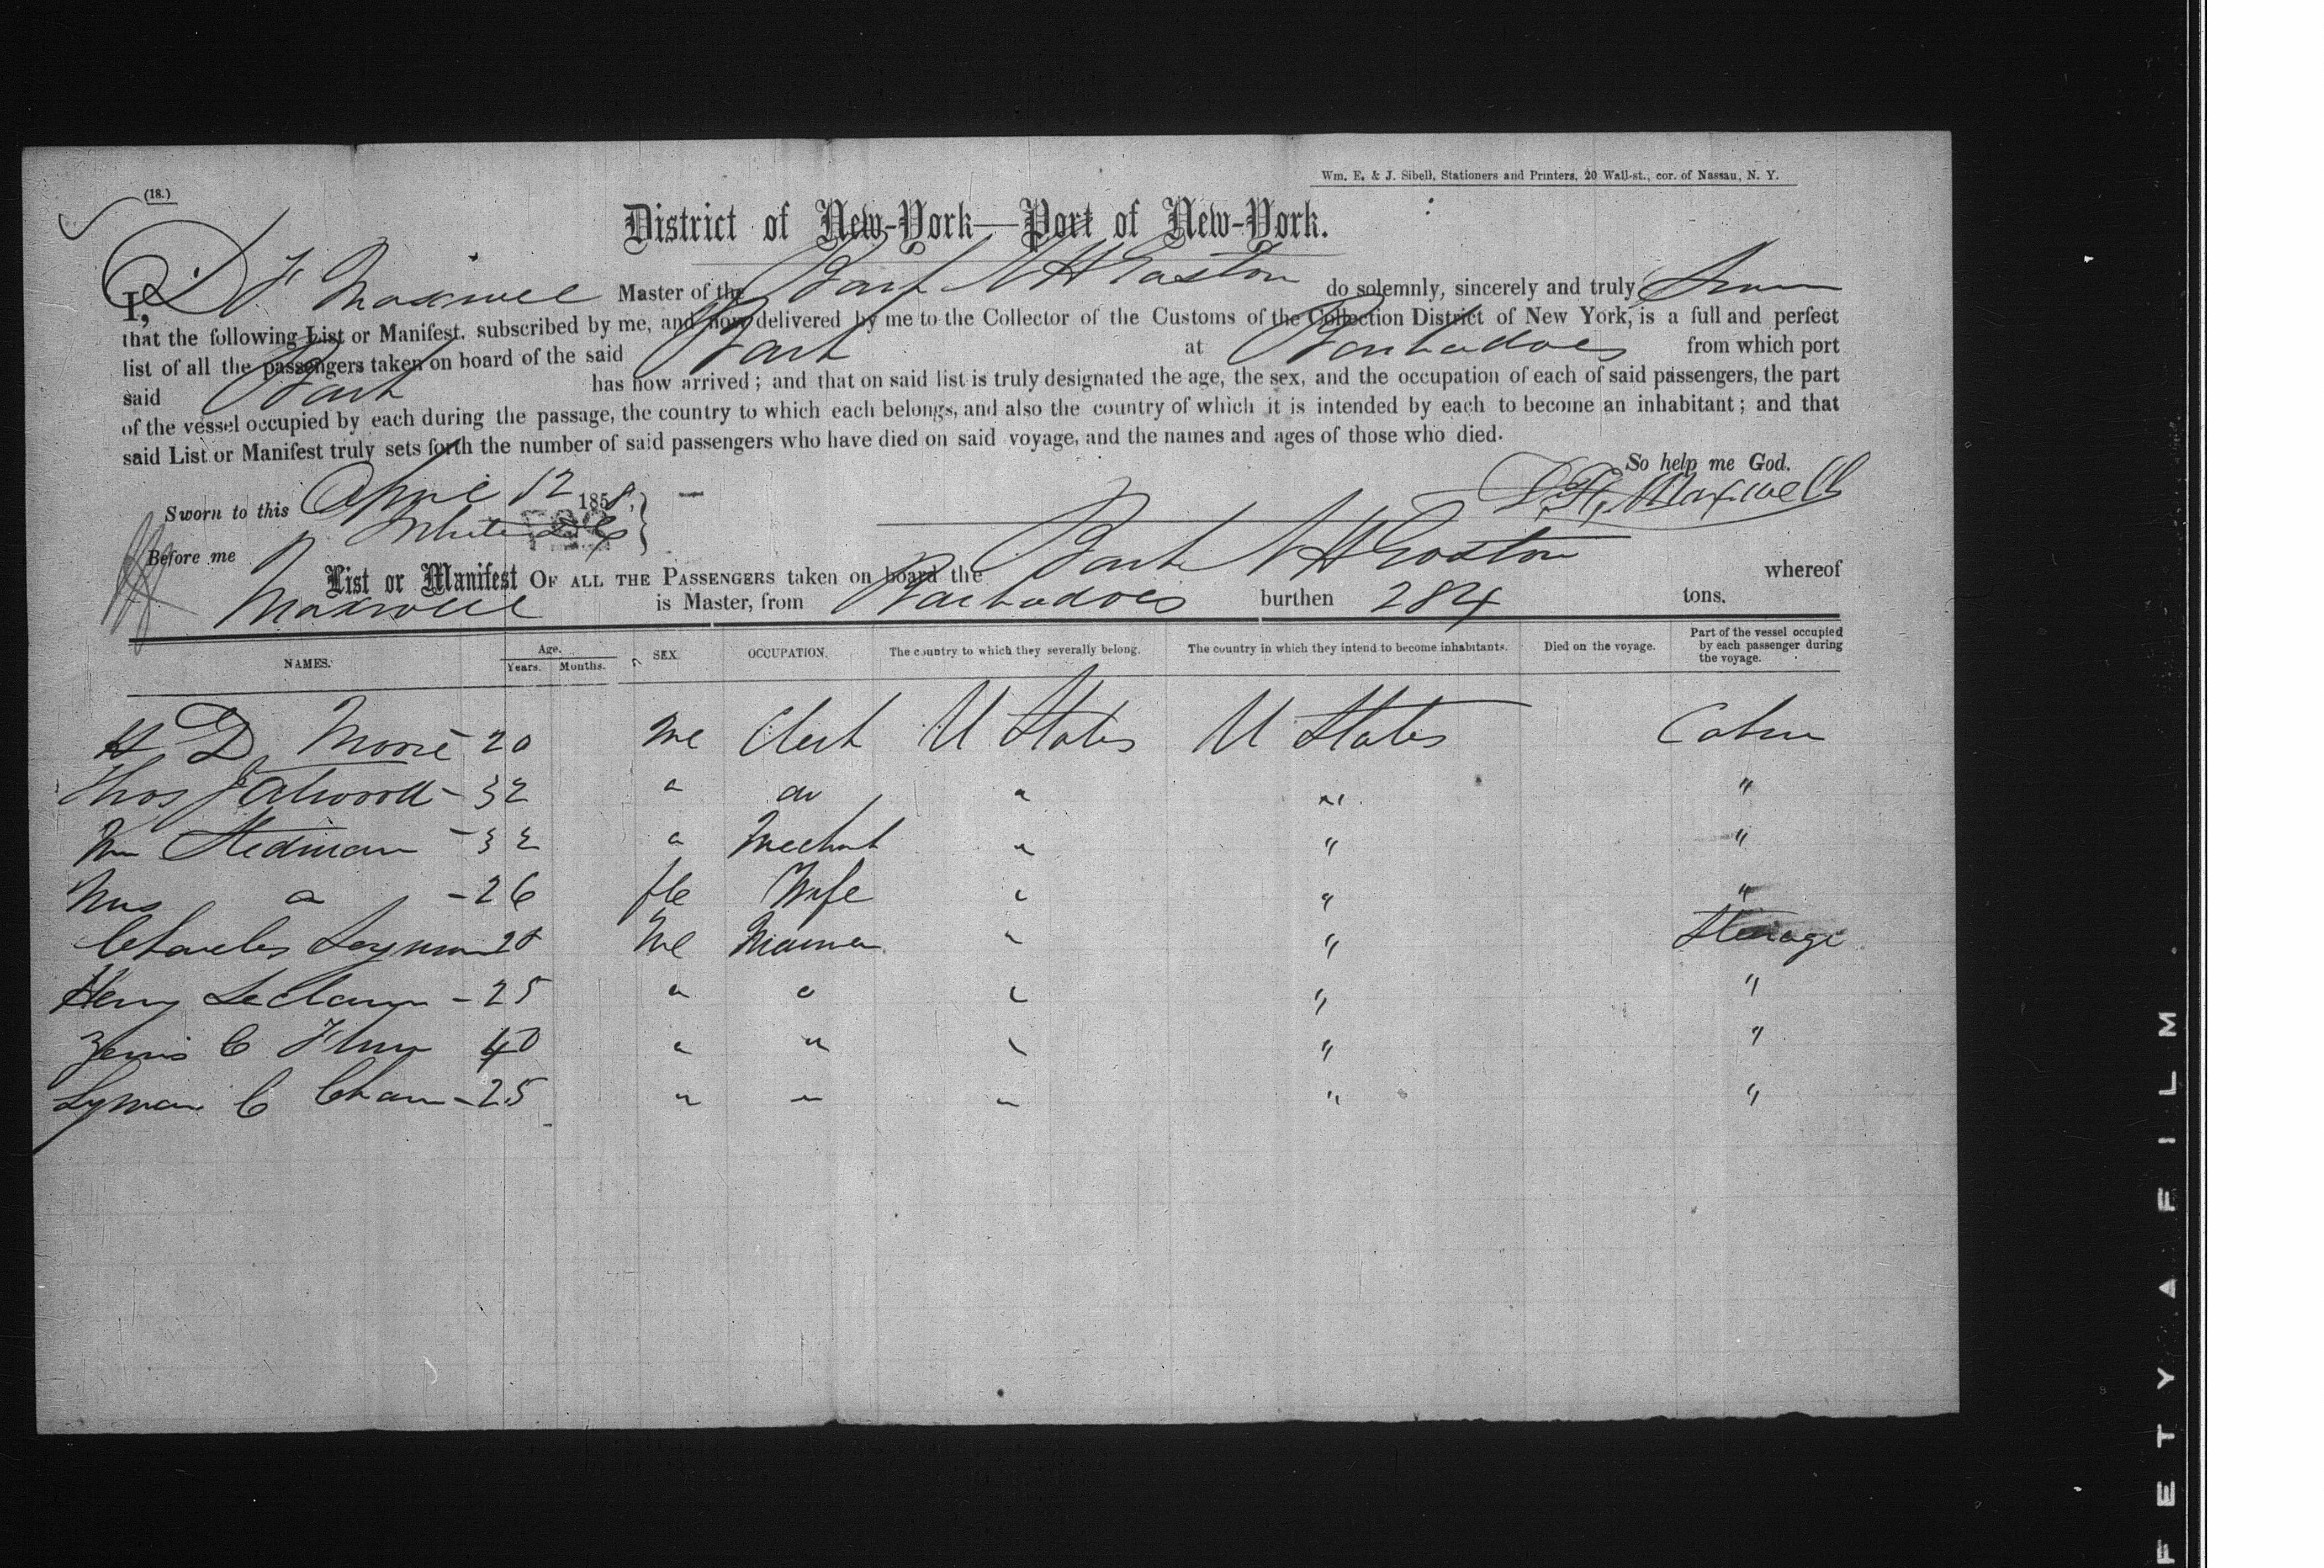 (18.)
Wm. E. & J. Sibell, Stationers and Printers, 20 Wall-st., cor. of Nassau, N. Y.
District of New-York—Port of New-York.
I, D H Maxwell Master of the Bark N H Gaston do solemnly, sincerely and truly swear
that the following List or Manifest, subscribed by me, and now delivered by me to the Collector of the Customs of the Collection District of New York, is a full and perfect
list of all the passengers taken on board of the said Bark at Barbadoes from which port
said Bark has now arrived; and that on said list is truly designated the age, the sex, and the occupation of each of said passengers, the part
of the vessel occupied by each during the passage, the country to which each belongs, and also the country of which it is intended by each to become an inhabitant; and that
said List or Manifest truly sets forth the number of said passengers who have died on said voyage, and the names and ages of those who died.
So help me God.
Sworn to this April 12 1858, D. H. Maxwell
Before me
List or Manifest OF ALL THE PASSENGERS taken on board the Bark N H Gaston whereof
Maxwell is Master, from Barbadoes burthen 284 tons.
NAMES. Age. Years. Months. SEX. OCCUPATION. The country to which they severally belong. The country in which they intend to become inhabitants. Died on the voyage. Part of the vessel occupied by each passenger during the voyage.
H D Moore - 20 Me Clerk U States U States Cabin
Thos J Atwood - 32 " do " " "
Wm Stedman - 32 " Mechnt " " "
Mrs " - 26 fle Wife " " "
Charles 20 Me Mariner " " Steerage
Henry - 25 " " " " "
C 40 " " " " "
Lyman C - 25 " " " " "
SAFETY FILM